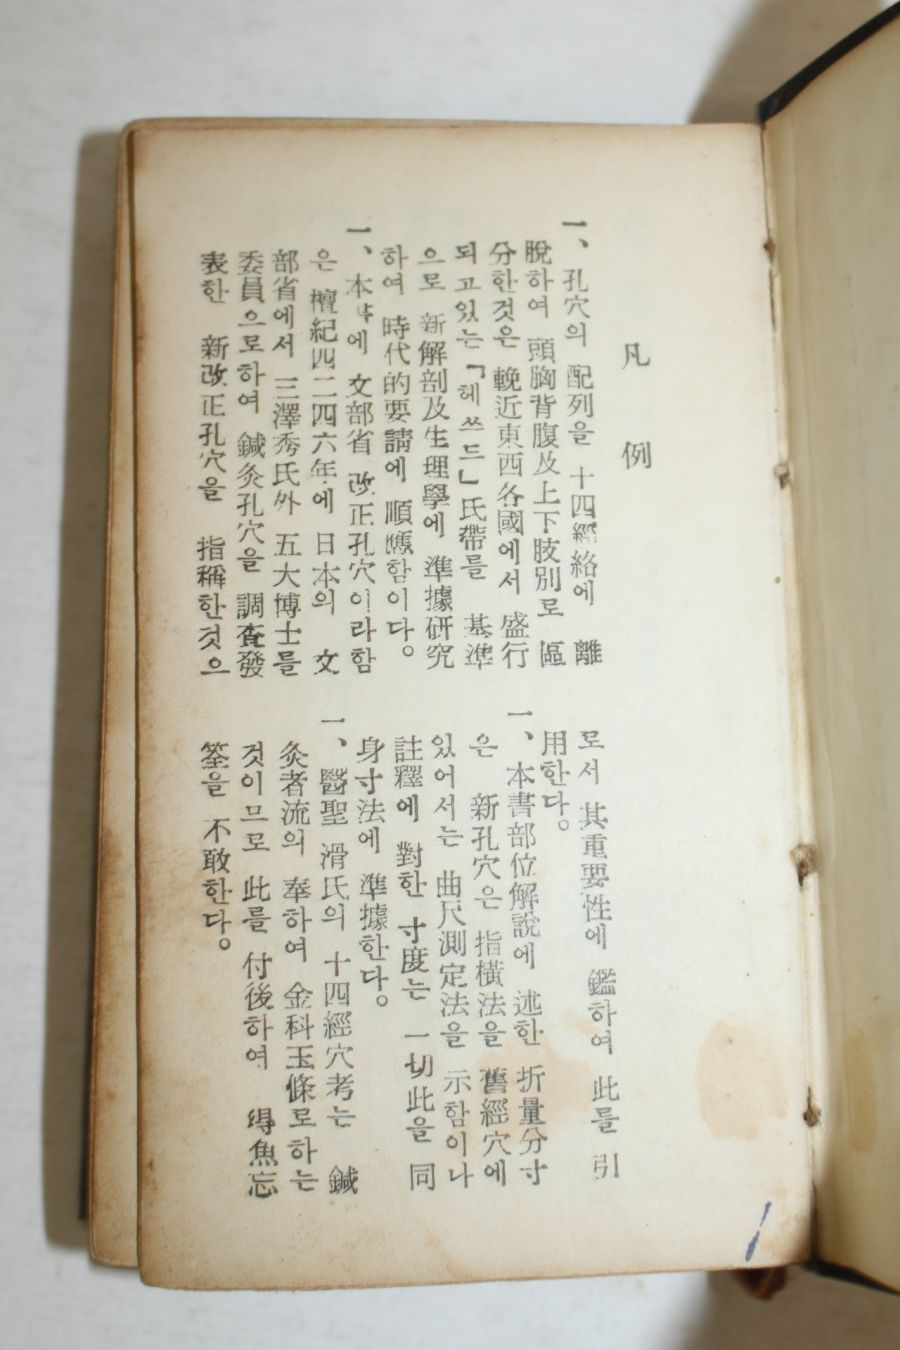 凡例
一、孔穴의 配列을 十四經絡에 離
脫하여 頭胸背腹及上下肢別로 區
分한것은 輓近東西各國에서 盛行
되고있는「헤쓰드」氏帶를 基準
으로 新解剖及生理學에 準據硏究
하여 時代的要請에 順應함이다。
一、本書에 文部省 改正孔穴이라함
은 檀紀四二四六年에 日本의 文
部省에서 三澤秀氏外 五大博士를
委員으로하여 鍼灸孔穴을 調査發
表한 新改正孔穴을 指稱한것으
로서 其重要性에 鑑하여 此를 引
用한다。
一、本書部位解說에 述한 折量分寸
은 新孔穴은 指橫法을 舊經穴에
있어서는 曲尺測定法을 示함이나
註釋에 對한 寸度는 一切此을 同
身寸法에 準據한다。
一、醫聖 滑氏의 十四經穴考는 鍼
灸者流의 奉하여 金科玉條로하는
것이므로 此를 付後하여 得魚忘
筌을 不敢한다。